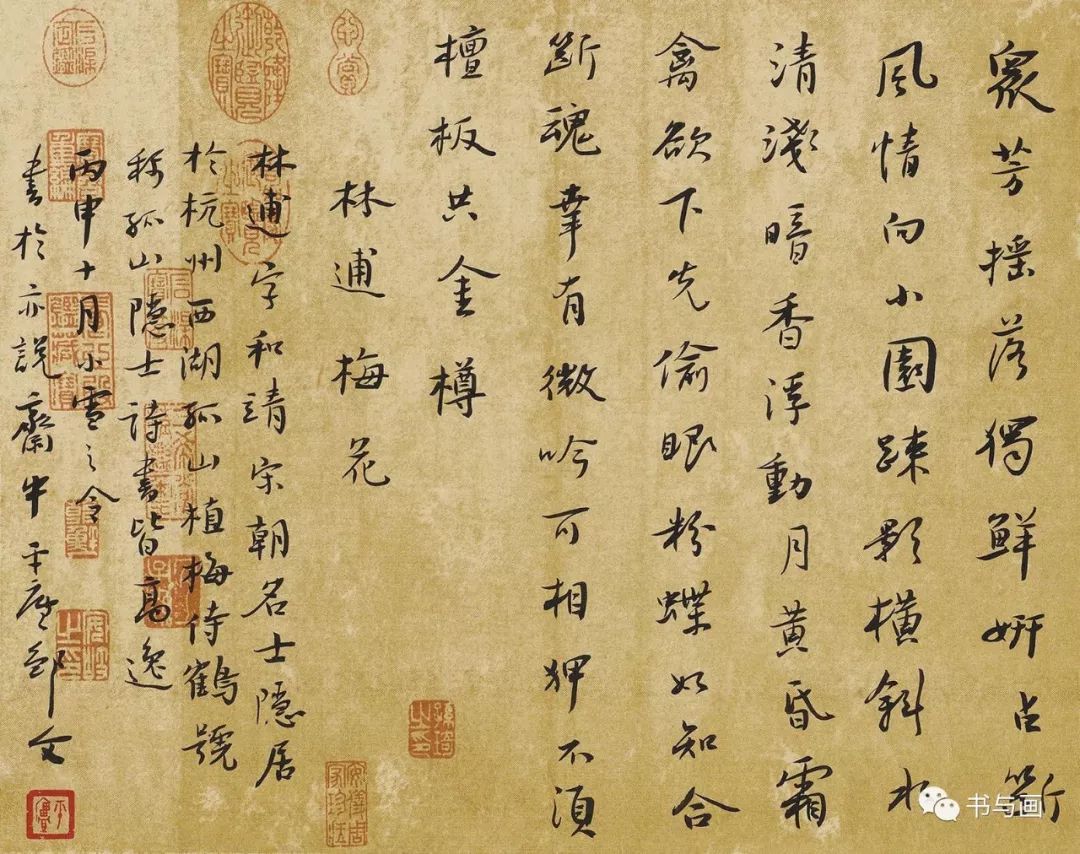 衆芳摇落獨鮮妍占斷
風情向小園疎影橫斜水
清淺暗香浮動月黄昏霜
禽欲下先偷眼粉蝶如知合
斷魂幸有微吟可相狎不須
檀板共金樽
林逋梅花
林逋字和靖宋朝名士隱居
於杭州西湖孤山植梅侍鶴號
称孤山隱士詩書皆高逸
丙申十月小雪之令
書於亦説齋中平廬文
书与画